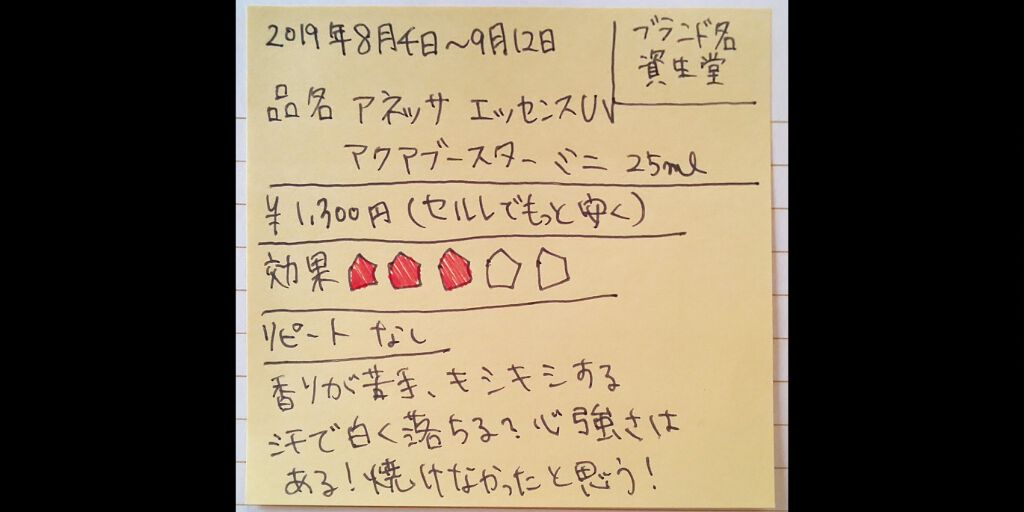 2019年8月4日～9月12日
ブランド名
資生堂
品名 アネッサ エッセンスUV
アクアブースター ミニ 25ml
¥1,300円(セルレでもっと安く)
効果
リピート なし
香りが苦手、キシキシする
汗で白く落ちる?心強さは
ある!焼けなかったと思う!